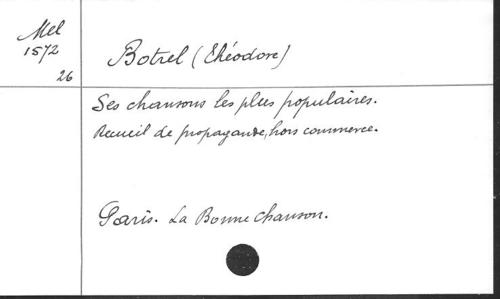 Mel
1572
26
Botrel (Théodore)
Ses chansons les plus populaires.
Recueil de propagande, hors commerce.
Paris. La Bonne Chanson.